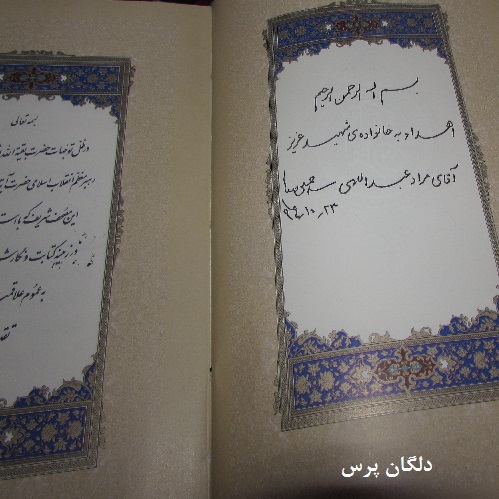 بسم الله الرحمن الرحیم
اهداء به خانواده‌ی شهید عزیز
آقای مراد عبداللهی
۲۳-۱۰-
بسمه تعالی
در ظل توجهات حضرت بقیة الله
رهبر معظم انقلاب اسلامی حضرت آیت
این مصحف شریف که با
و زرینه کتابت و نگارش
به عموم علاقمند
دلگان پرس